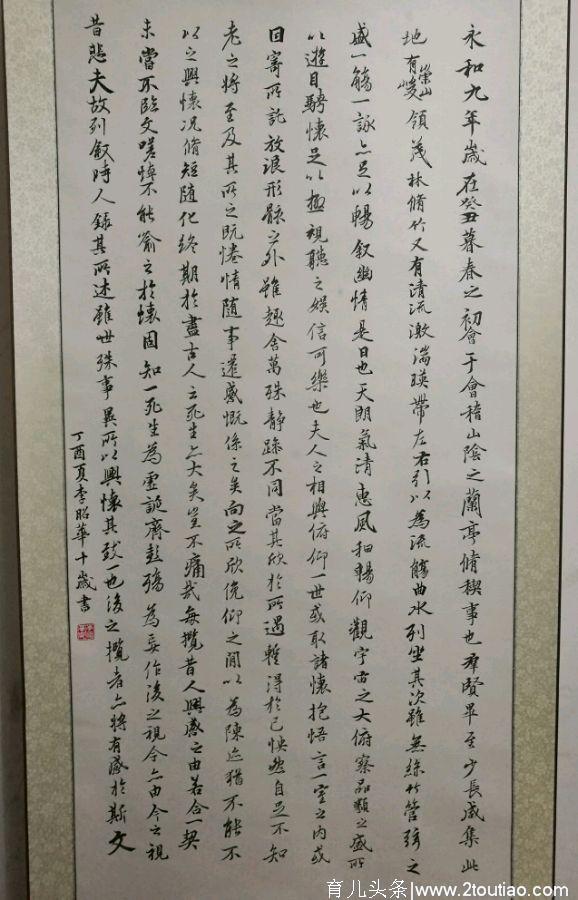 永和九年歲在癸丑暮春之初會于會稽山陰之蘭亭脩稧事也羣賢畢至少長咸集此
地有崇山峻領茂林脩竹又有清流激湍暎帶左右引以為流觴曲水列坐其次雖無絲竹管弦之
盛一觴一詠亦足以暢叙幽情是日也天朗氣清惠風和暢仰觀宇宙之大俯察品類之盛所
以遊目騁懷足以極視聽之娛信可樂也夫人之相與俯仰一世或取諸懷抱悟言一室之內或
因寄所託放浪形骸之外雖趣舍萬殊靜躁不同當其欣於所遇暫得於己怏然自足不知
老之將至及其所之既惓情隨事遷感慨係之矣向之所欣俛仰之閒以為陳迹猶不能不
以之興懷況脩短隨化終期於盡古人云死生亦大矣豈不痛哉每攬昔人興感之由若合一契
未嘗不臨文嗟悼不能喻之於懷固知一死生為虛誕齊彭殤為妄作後之視今亦由今之視
昔悲夫故列叙時人錄其所述雖世殊事異所以興懷其致一也後之攬者亦將有感於斯文
丁酉夏李昭華十歲書
育儿头条|www.2toutiao.com